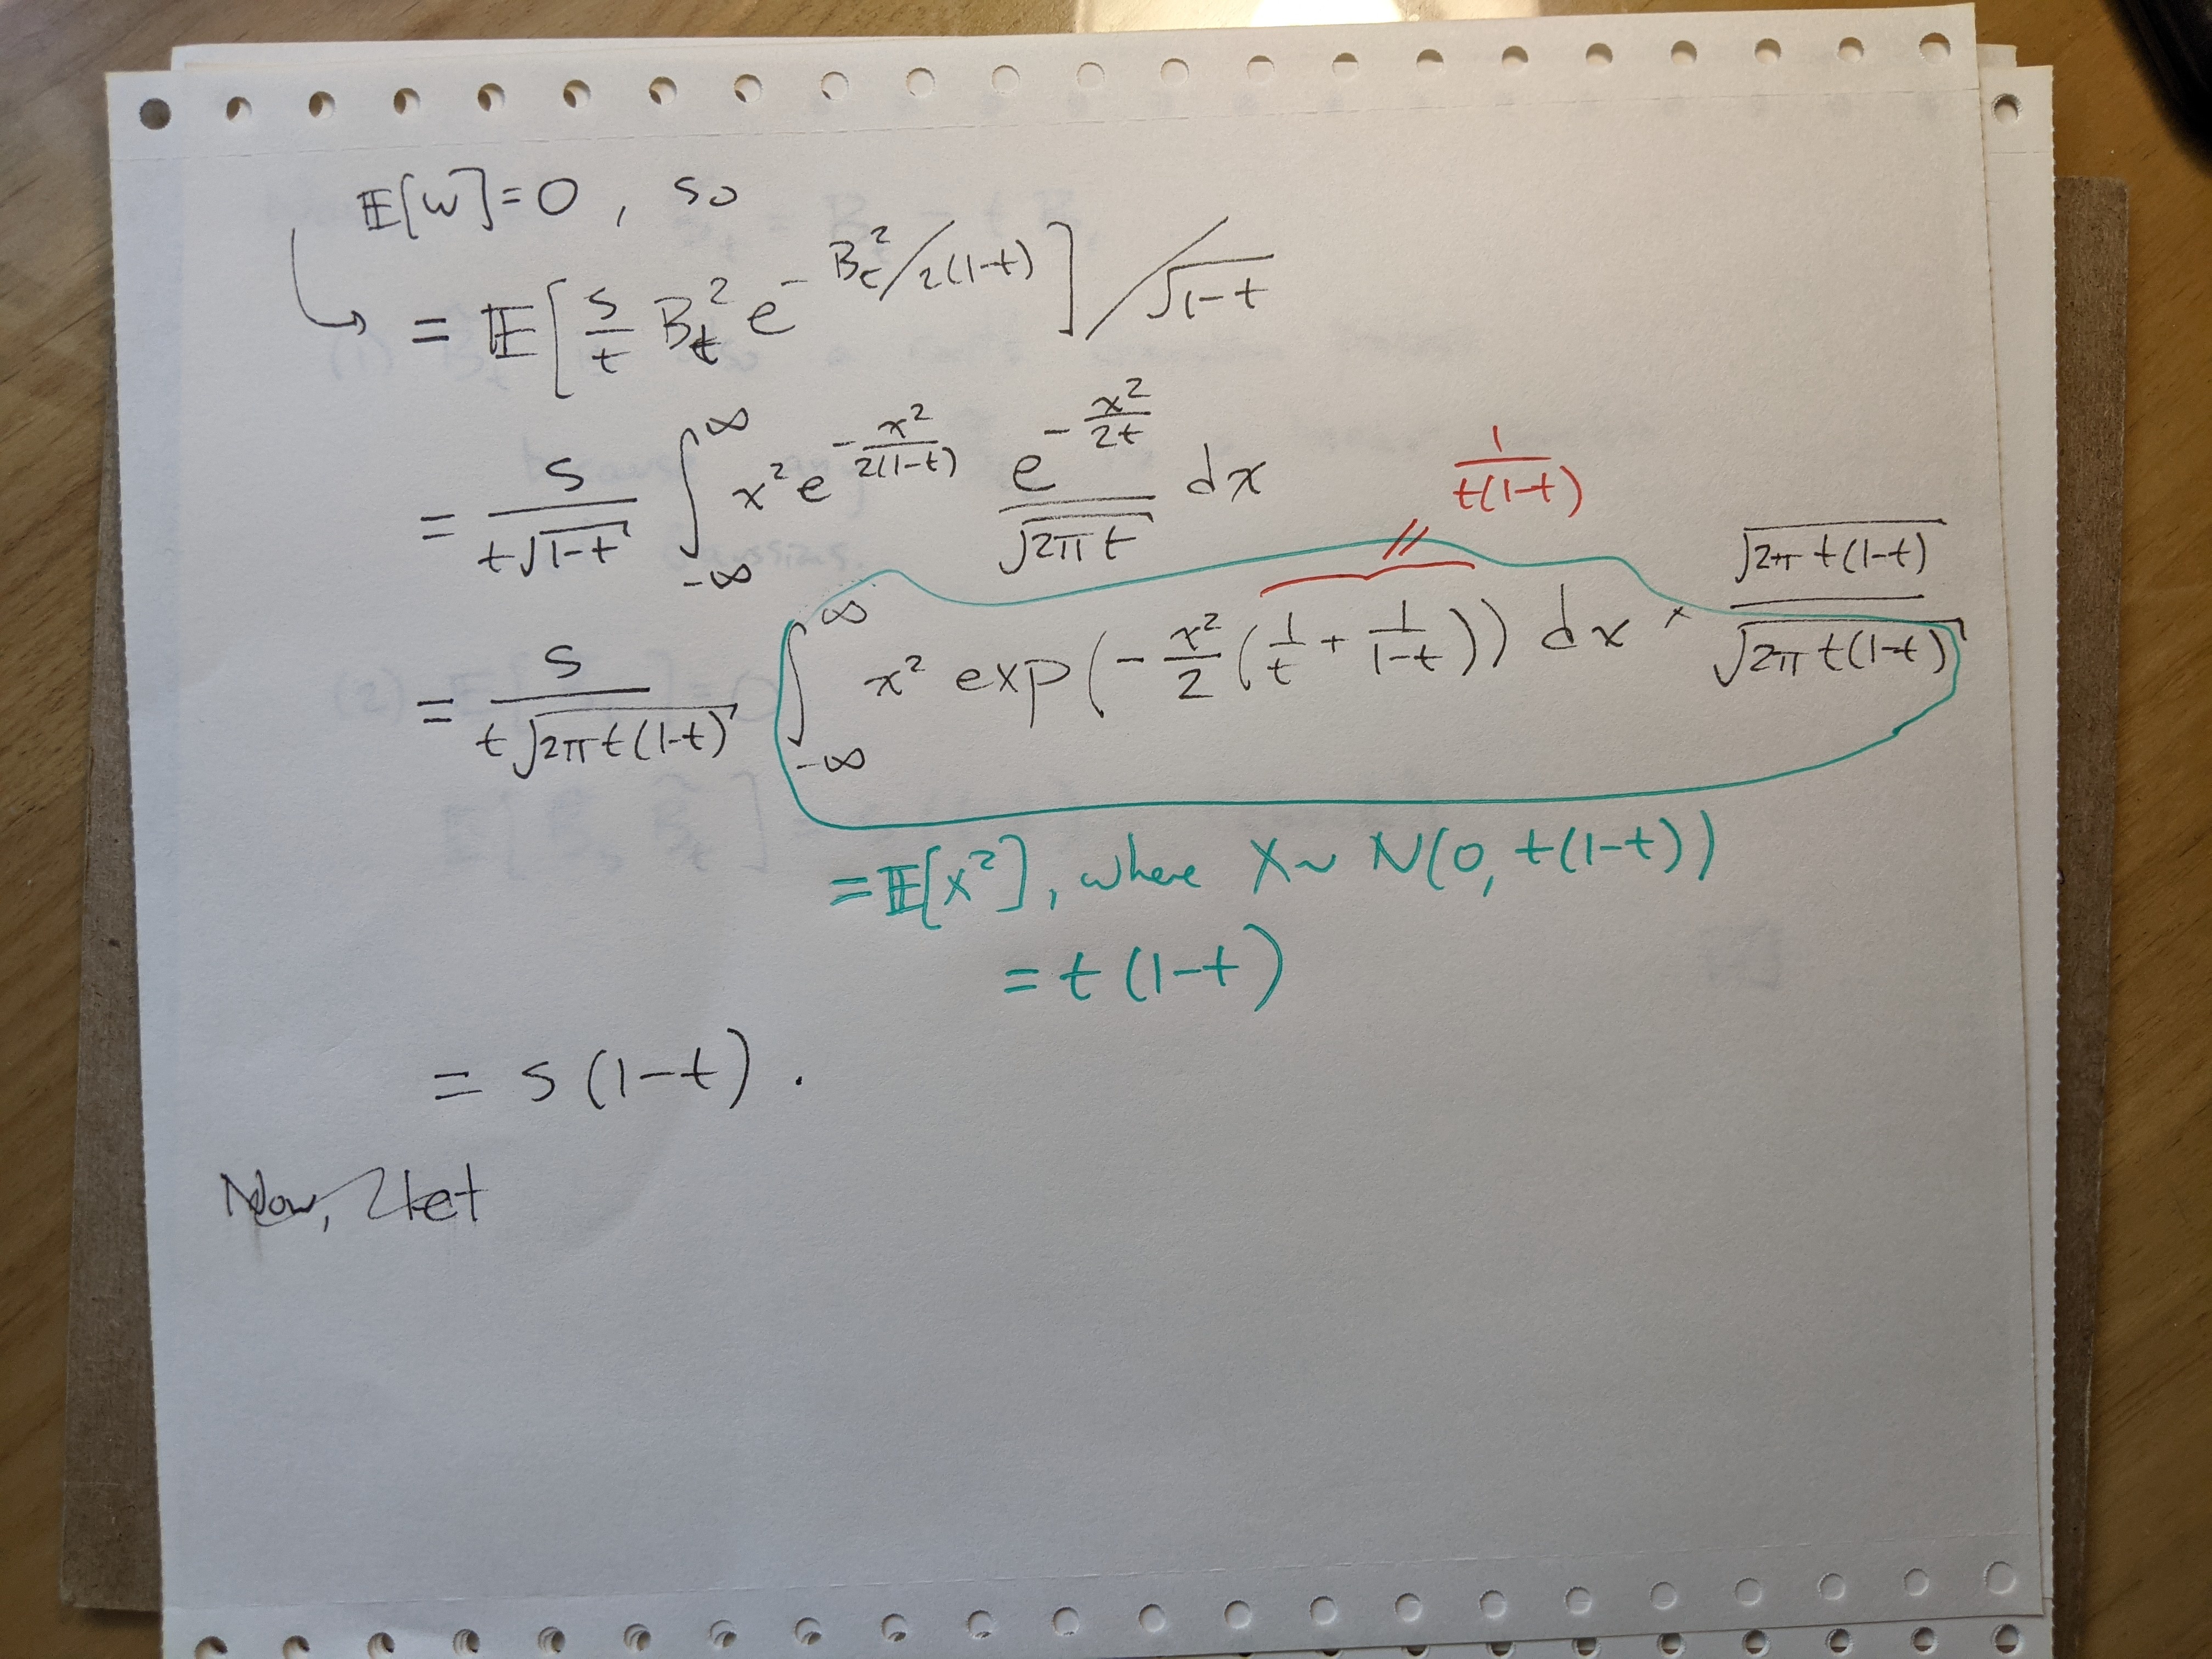 𝔼[W]=0, so
= 𝔼[s/t B_t^2 e^{-B_t^2/2(1-t)}] / √(1-t)
= s/(t√(1-t)) ∫_{-∞}^{∞} x^2 e^{-x^2/(2(1-t))} e^{-x^2/(2t)}/√(2πt) dx
1/(t(1-t))
= s/(t√(2πt(1-t))) ∫_{-∞}^{∞} x^2 exp(-x^2/2 (1/t + 1/(1-t))) dx × √(2πt(1-t))/√(2πt(1-t))
= 𝔼[X^2], where X ~ N(0, t(1-t))
= t(1-t)
= s(1-t).
Now, let